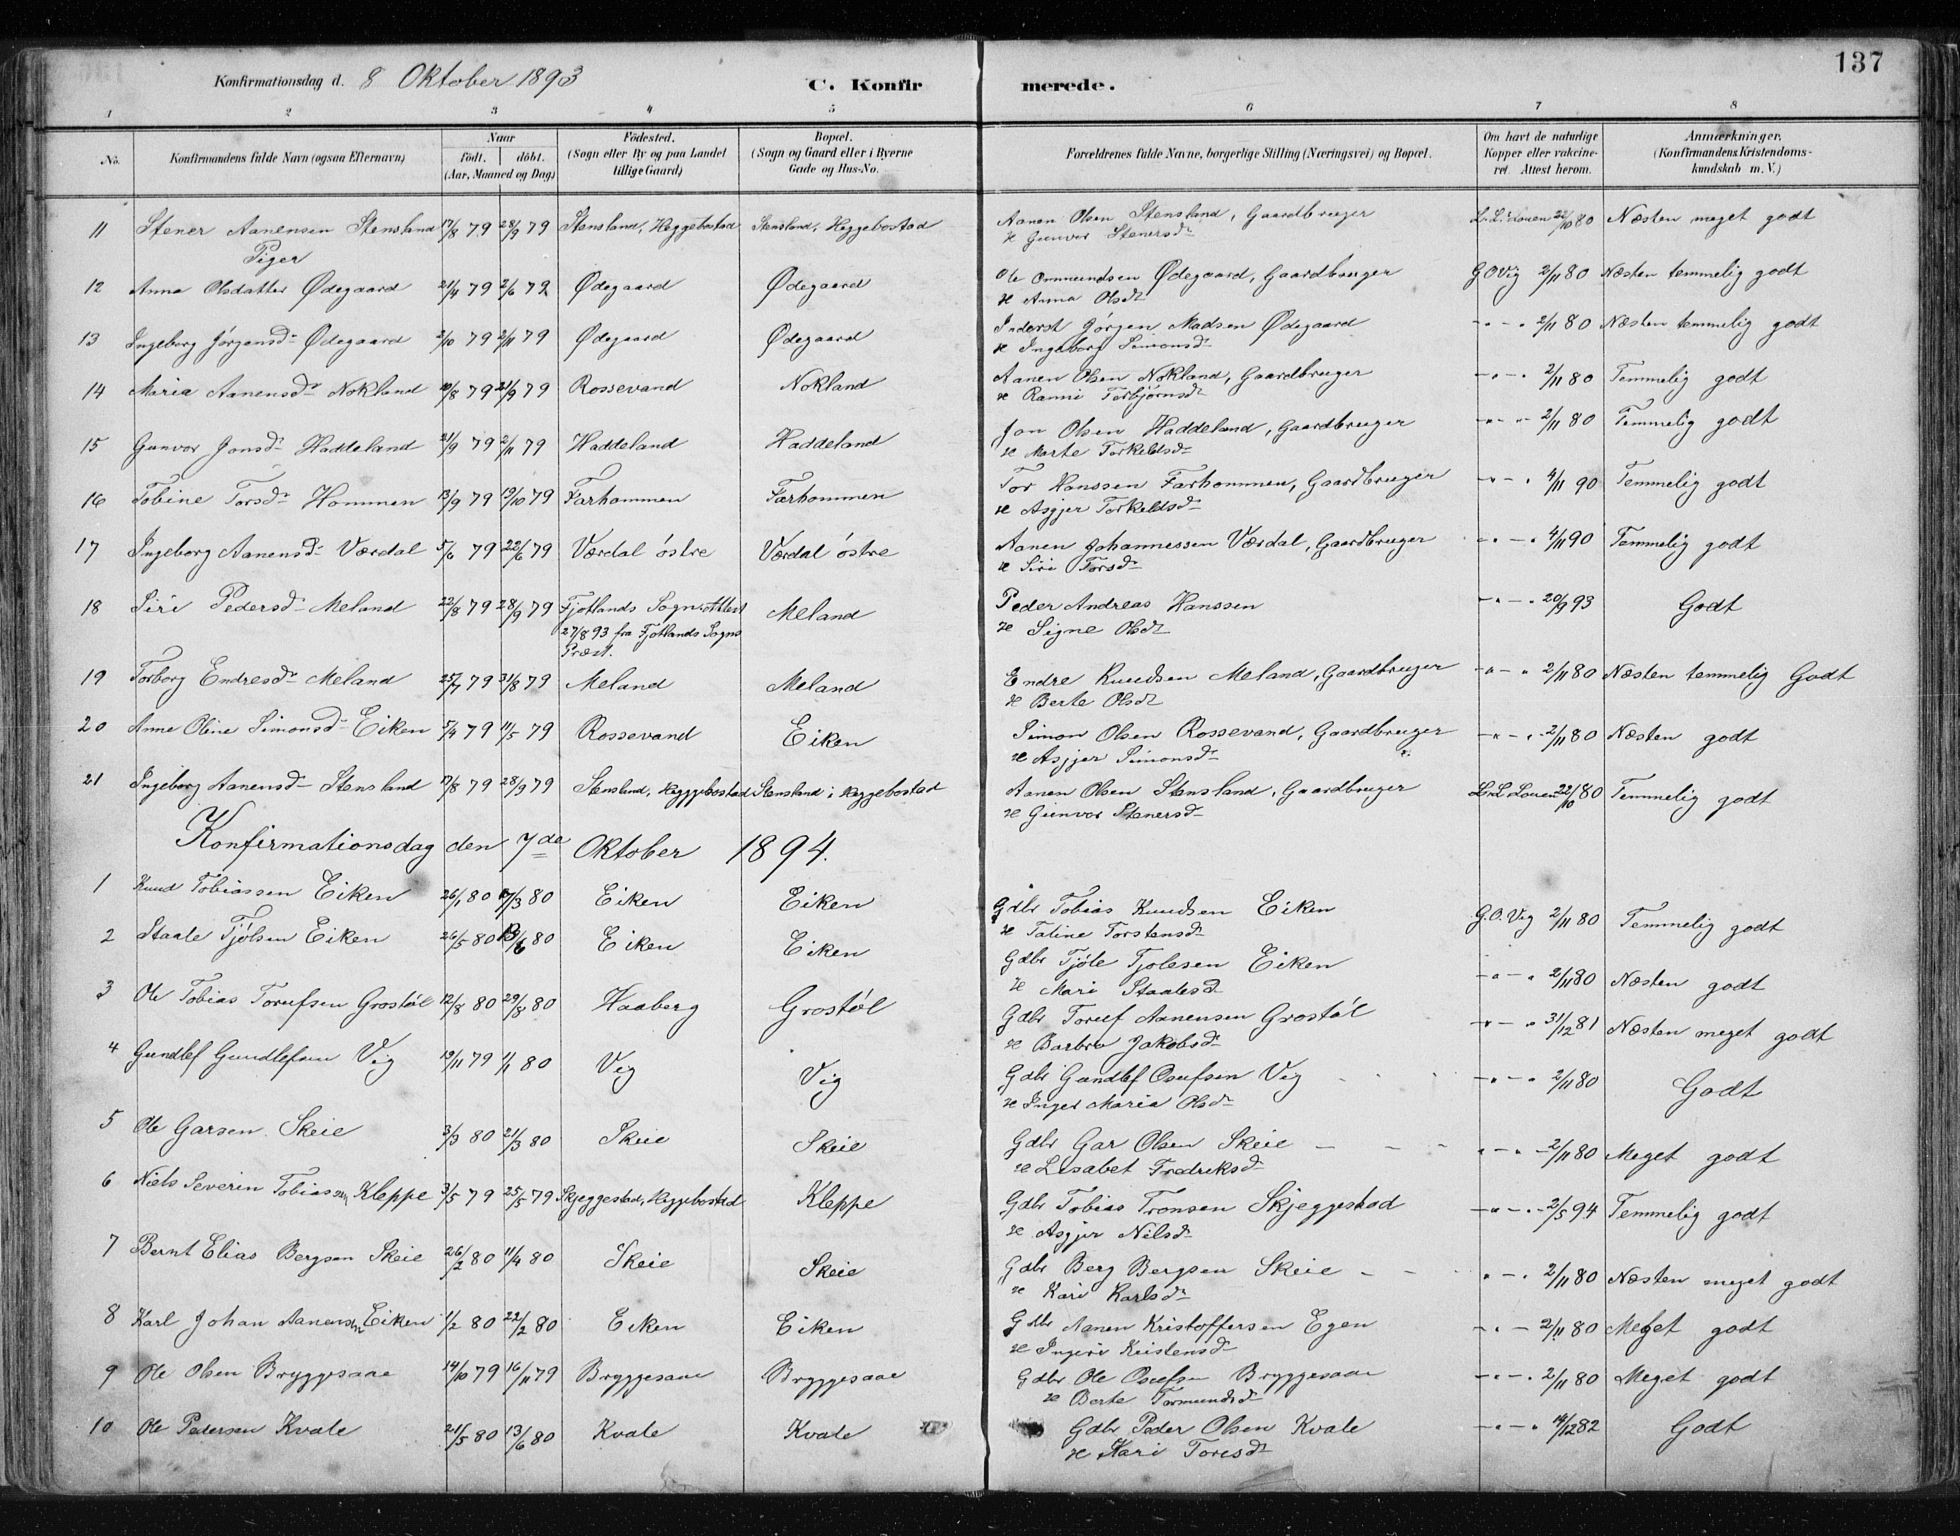 137
Konfirmationsdag d. 8 Oktober 1893 C. Konfir merede.
1 2 3 4 5 6 7 8
No. Konfirmandens fulde Navn (ogsaa Efternavn) Naar födt. döbt. (Aar, Maaned og Dag) Födested. (Sogn eller By og paa Landet tillige Gaard) Bopæl. (Sogn og Gaard eller i Byerne Gade og Hus-No. Forældrenes fulde Navne, borgerlige Stilling (Næringsvei) og Bopæl. Om havt de naturlige Kopper eller vakcineret. Attest herom. Anmærkninger. (Konfirmandens Kristendomskundskab m. V.)
11 Stener Aanensen Stensland 17/8 79 28/9 79 Stensland, Heggebostad Stensland, Heggebostad Aanen Olsen Stensland, Gaardbruger 22/10 80 Næsten meget godt
Piger
æ Gunvor Stenersdr
12 Anna Olsdatter Ødegaard 21/4 79 2/6 79 Ødegaard Ødegaard Ole Ommundsen Ødegaard, Gaardbruger G O Vig 2/11 80 Næsten temmelig godt
æ Anna Olsdr
13 Ingeborg Jørgensdr Ødegaard 2/10 79 2/11 79 Ødegaard Ødegaard Inderst Jørgen Madsen Ødegaard -"-" 2/11 80 Næsten temmelig godt
æ Ingeborg Simonsdr
14 Maria Aanensdr Nokland 79 21/9 79 Rossevand Nokland Aanen Olsen Nokland, Gaardbruger -"-" 2/11 80 Temmelig godt
æ Ranni Torbjørnsdr
15 Gunvor Jonsdr Haddeland 21/9 79 2/11 79 Haddeland Haddeland Jon Olsen Haddeland, Gaardbruger -"-" 2/11 80 Temmelig godt
æ Marte Torkeldsdr
16 Tobine Torsdr Hommen 13/9 79 19/10 79 Farhommen Farhommen Tor Hanssen Farhommen, Gaardbruger -"-" 4/11 90 Temmelig godt
æ Asgjer Torkeldsdr
17 Ingeborg Aanensdr Værdal 5/6 79 22/6 79 Værdal østre Værdal østre Aanen Johannessen Værdal, Gaardbruger -"-" 4/11 90 Temmelig godt
æ Siri Torsdr
18 Siri Pedersdr Meland 22/8 79 28/9 79 Fjotlands Sogn. Attest Meland Peder Andreas Hanssen -"-" 20/9 93 Godt
27/8 93 fra Fjotlands Sogne
Præst.
æ Signe Olsdr
19 Torborg Endresdr Meland 25/7 79 31/8 79 Meland Meland Endre Knudsen Meland, Gaardbruger -"-" 2/11 80 Næsten temmelig Godt
æ Berte Olsdr
20 Anne Oline Simonsdr Eiken 5/4 79 11/5 79 Rossevand Eiken Simon Olsen Rossevand, Gaardbruger -"-" 2/11 80 Næsten godt
æ Asgjer Simonsdr
21 Ingeborg Aanensdr Stensland 17/8 79 28/9 79 Stensland, Heggebostad Stensland i Heggebostad Aanen Olsen Stensland, Gaardbruger 22/10 80 Temmelig godt
æ Gunvor Stenersdr
Konfirmationsdag den 7de Oktober 1894.
1 Knud Tobiassen Eiken 26/1 80 /3 80 Eiken Eiken Gdbr Tobias Knudsen Eiken G. O. Vig 2/11 80 Temmelig godt
æ Taline Torstensdr
2 Staale Tjølsen Eiken 26/5 80 13/6 80 Eiken Eiken Gdbr Tjøle Tjolesen Eiken -"-" 2/11 80 Næsten godt
æ Mari Staalesdr
3 Ole Tobias Torufsen Grostøl 12/8 80 29/8 80 Haaberg Grostøl Gdbr Toruf Aanensen Grostøl -"-" 31/12 81 Næsten meget godt
æ Barbro Jakobsdr
4 Gundlef Gundlefsen Vig 19/11 79 1/1 80 Vig Vig Gdbr Gundlef Osufsen Vig -"-" 2/11 80 Godt
æ Inger Maria Olsdr
5 Ole Garsen Skeie 3/3 80 21/3 80 Skeie Skeie Gdbr Gar Olsen Skeie -"-" 2/11 80 Meget godt
æ Lisabet Fredriksdr
6 Niels Severin Tobiassen Kleppe 3/5 79 25/5 79 Skjeggestad, Heggebostad Kleppe Gdbr Tobias Tronsen Skjeggestad -"-" 2/5 94 Temmelig godt
æ Asgjer Nilsdr
7 Bernt Elias Bergsen Skeie 26/2 80 11/4 80 Skeie Skeie Gdbr Berg Bergsen Skeie -"-" 2/11 80 Næsten meget godt
æ Kari Karlsdr
8 Karl Johan Aanensen Eiken 1/2 80 22/2 80 Eiken Eiken Gdbr Aanen Kristoffersen Egen -"-" 2/11 80 Meget godt
æ Ingeri Kristensdr
9 Ole Olsen Bryggesaae 14/10 79 16/11 79 Bryggesaae Bryggesaae Gdbr Ole Osufsen Bryggesaae -"-" 2/11 80 Meget godt
æ Berte Tormundsdr
10 Ole Pedersen Kvale 21/5 80 13/6 80 Kvale Kvale Gdbr Peder Olsen Kvale -"-" /12 82 Godt
æ Kari Toresdr